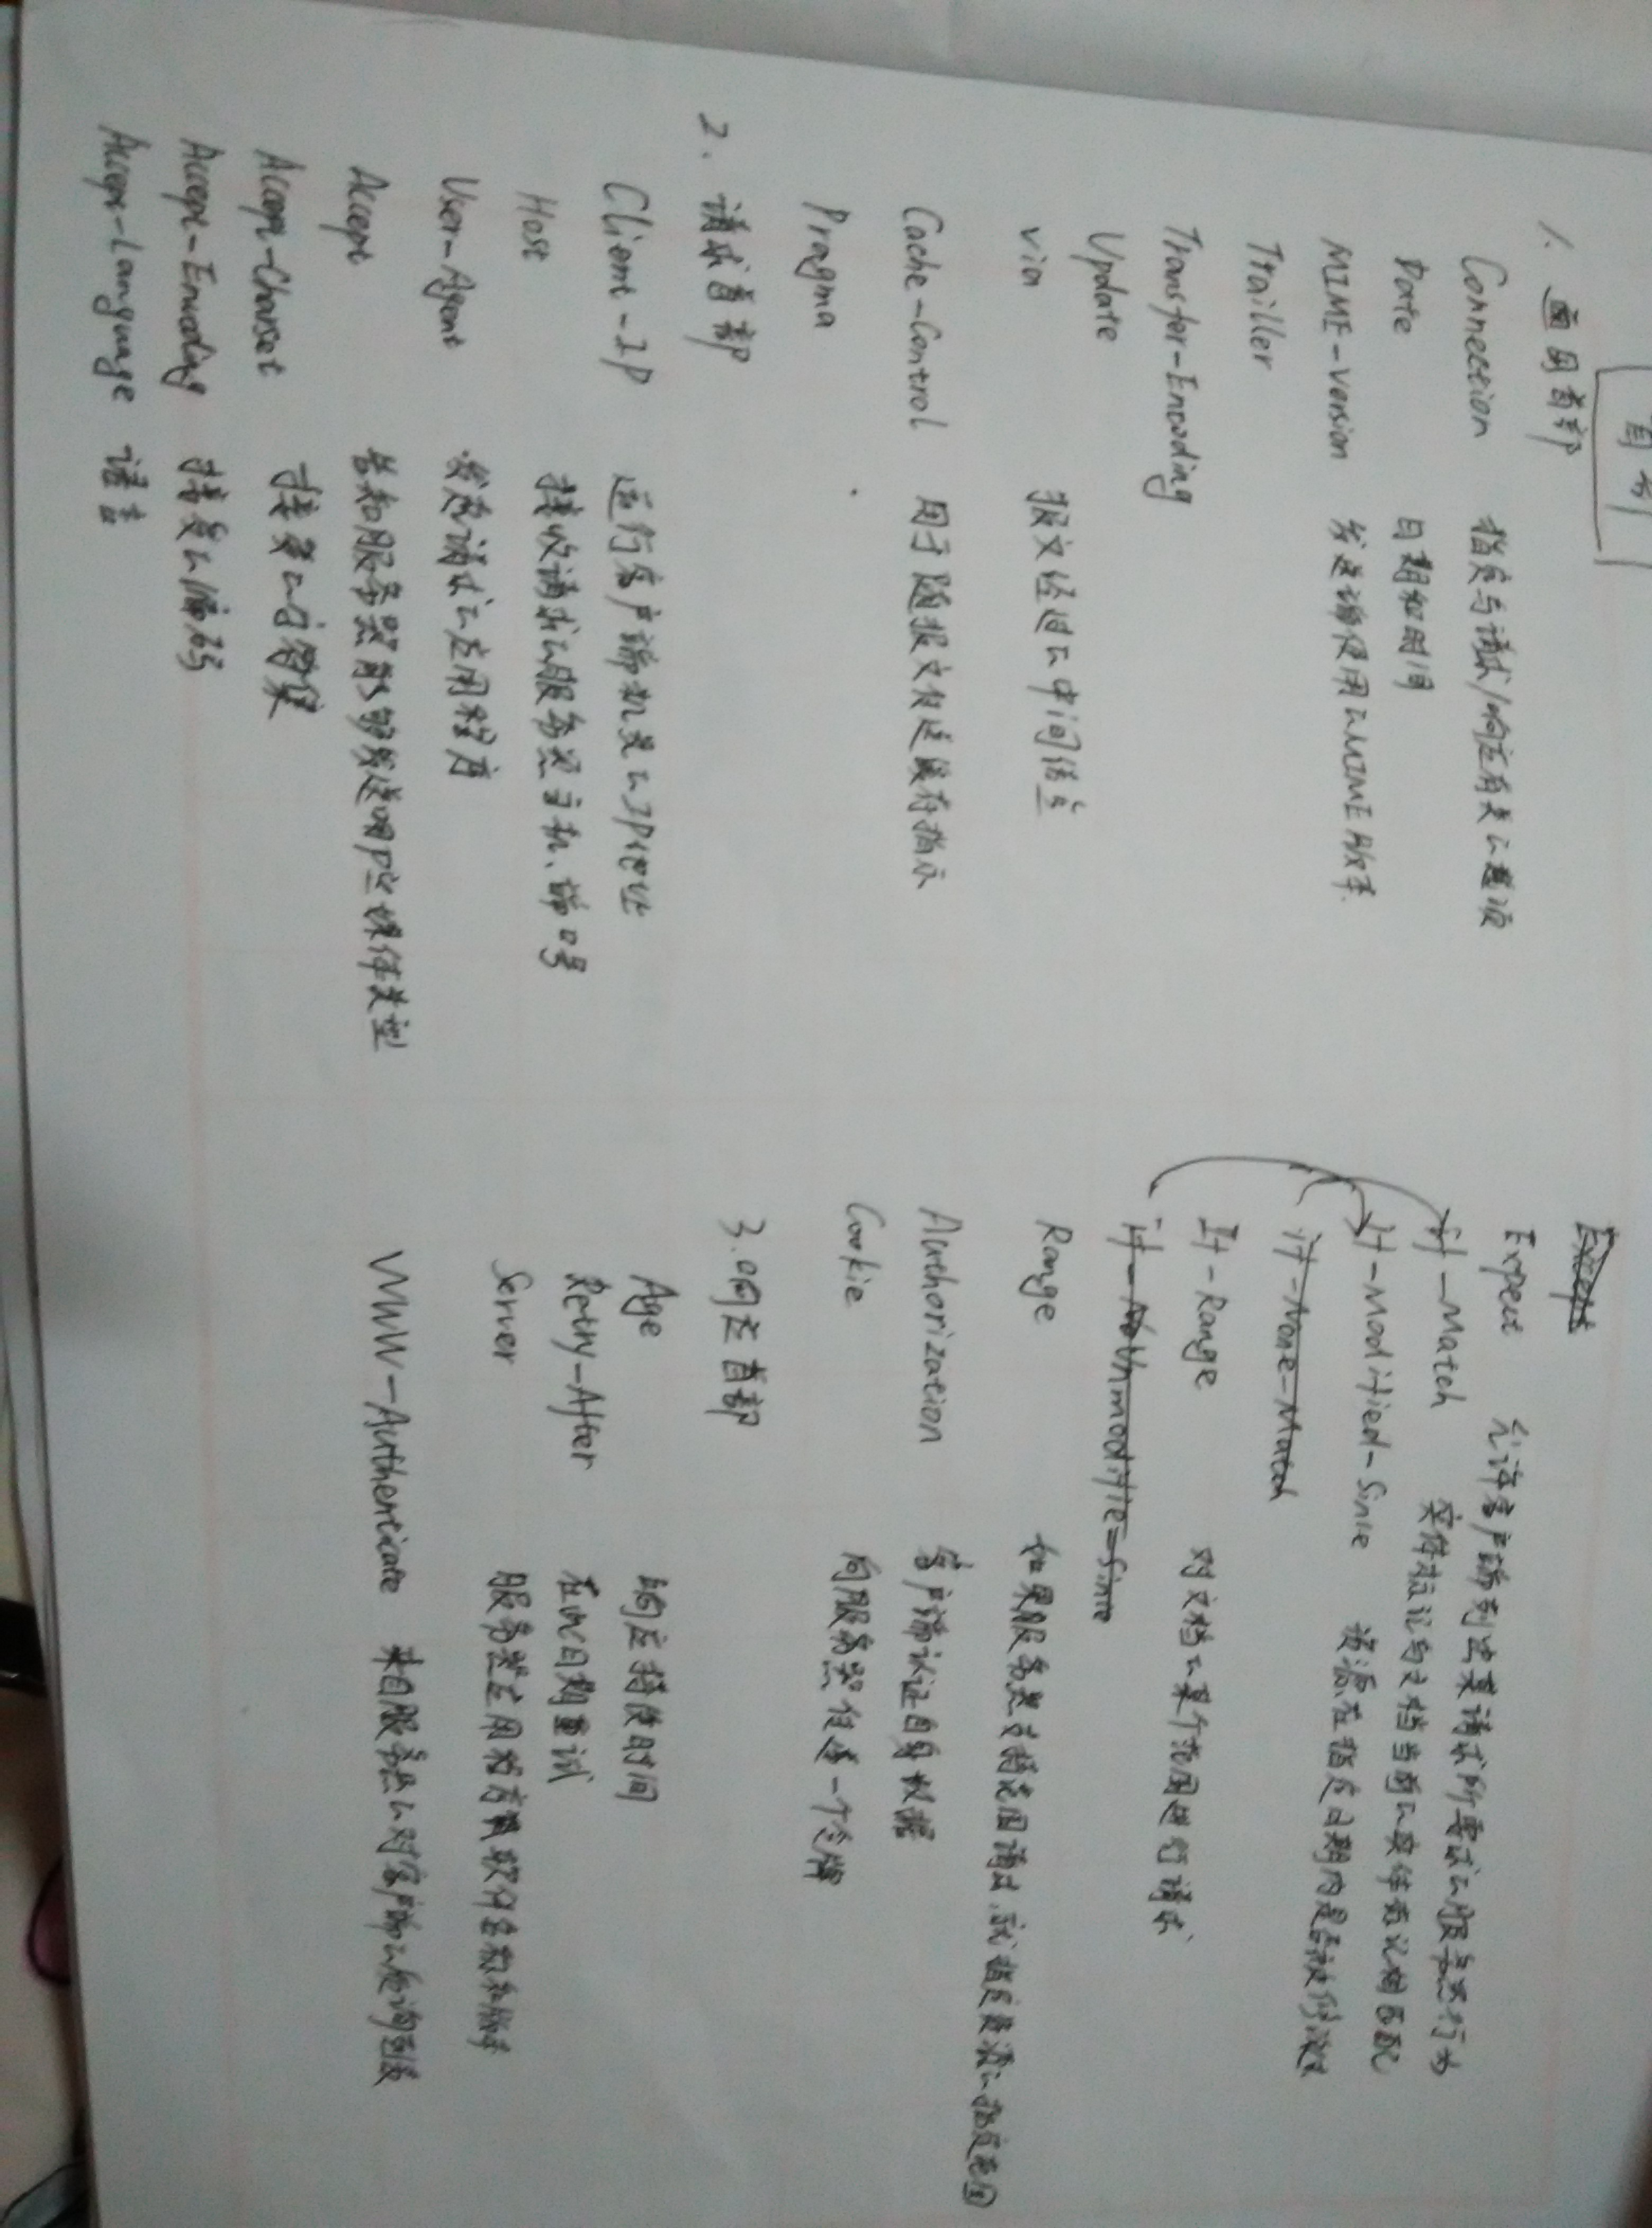 首部
1. 通用首部
Connection 指定与请求/响应有关的选项
Date 日期和时间
MIME-version 发送端使用的MIME版本
Trailler
Transfor-Encoding
Update
via 报文经过的中间信息
Cache-Control 用于随报文传送缓存指示
Pragma
2. 请求首部
Client-IP 运行客户端机器的IP地址
Host 接收请求的服务器主机、端口号
User-Agent 发起请求的应用程序
Accept 告知服务器能够发送哪些媒体类型
Accept-Charset 接受的字符集
Accept-Encoding 接受的编码
Accept-Language 语言
Expect 允许客户端列出某请求所要求的服务器行为
if-Match 实体标记与文档当前的实体标记相匹配
If-Modified-Since 资源在指定日期内是否被修改
if-None-Match
If-Range 对文档的某个范围进行请求
Range 如果服务器支持范围请求,就指定资源的指定范围
Authorization 客户端认证自身数据
Cookie 向服务器传送一个令牌
3. 响应首部
Age 响应持续时间
Retry-After 在此日期重试
Server 服务器应用程序软件名称和版本
WWW-Authenticate 来自服务器的对客户端的质询列表